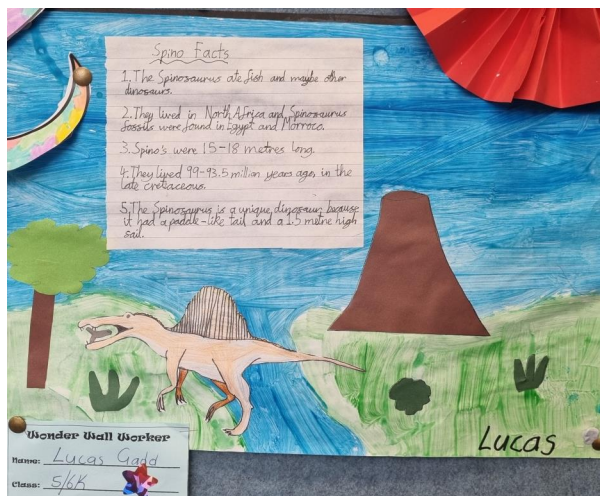 Spino Facts
1. The Spinosaurus ate fish and maybe other
dinosaurs.
2. They lived in North Africa and Spinosaurus
fossils were found in Egypt and Morroco.
3. Spino's were 15-18 metres long.
4. They lived 99-93.5 million years ago, in the
late cretaceous.
5. The Spinosaurus is a unique dinosaur because
it had a paddle-like tail and a 1.5 metre high
sail.
Wonder Wall Worker
Name: Lucas Gadd
Class: 5/6K
Lucas